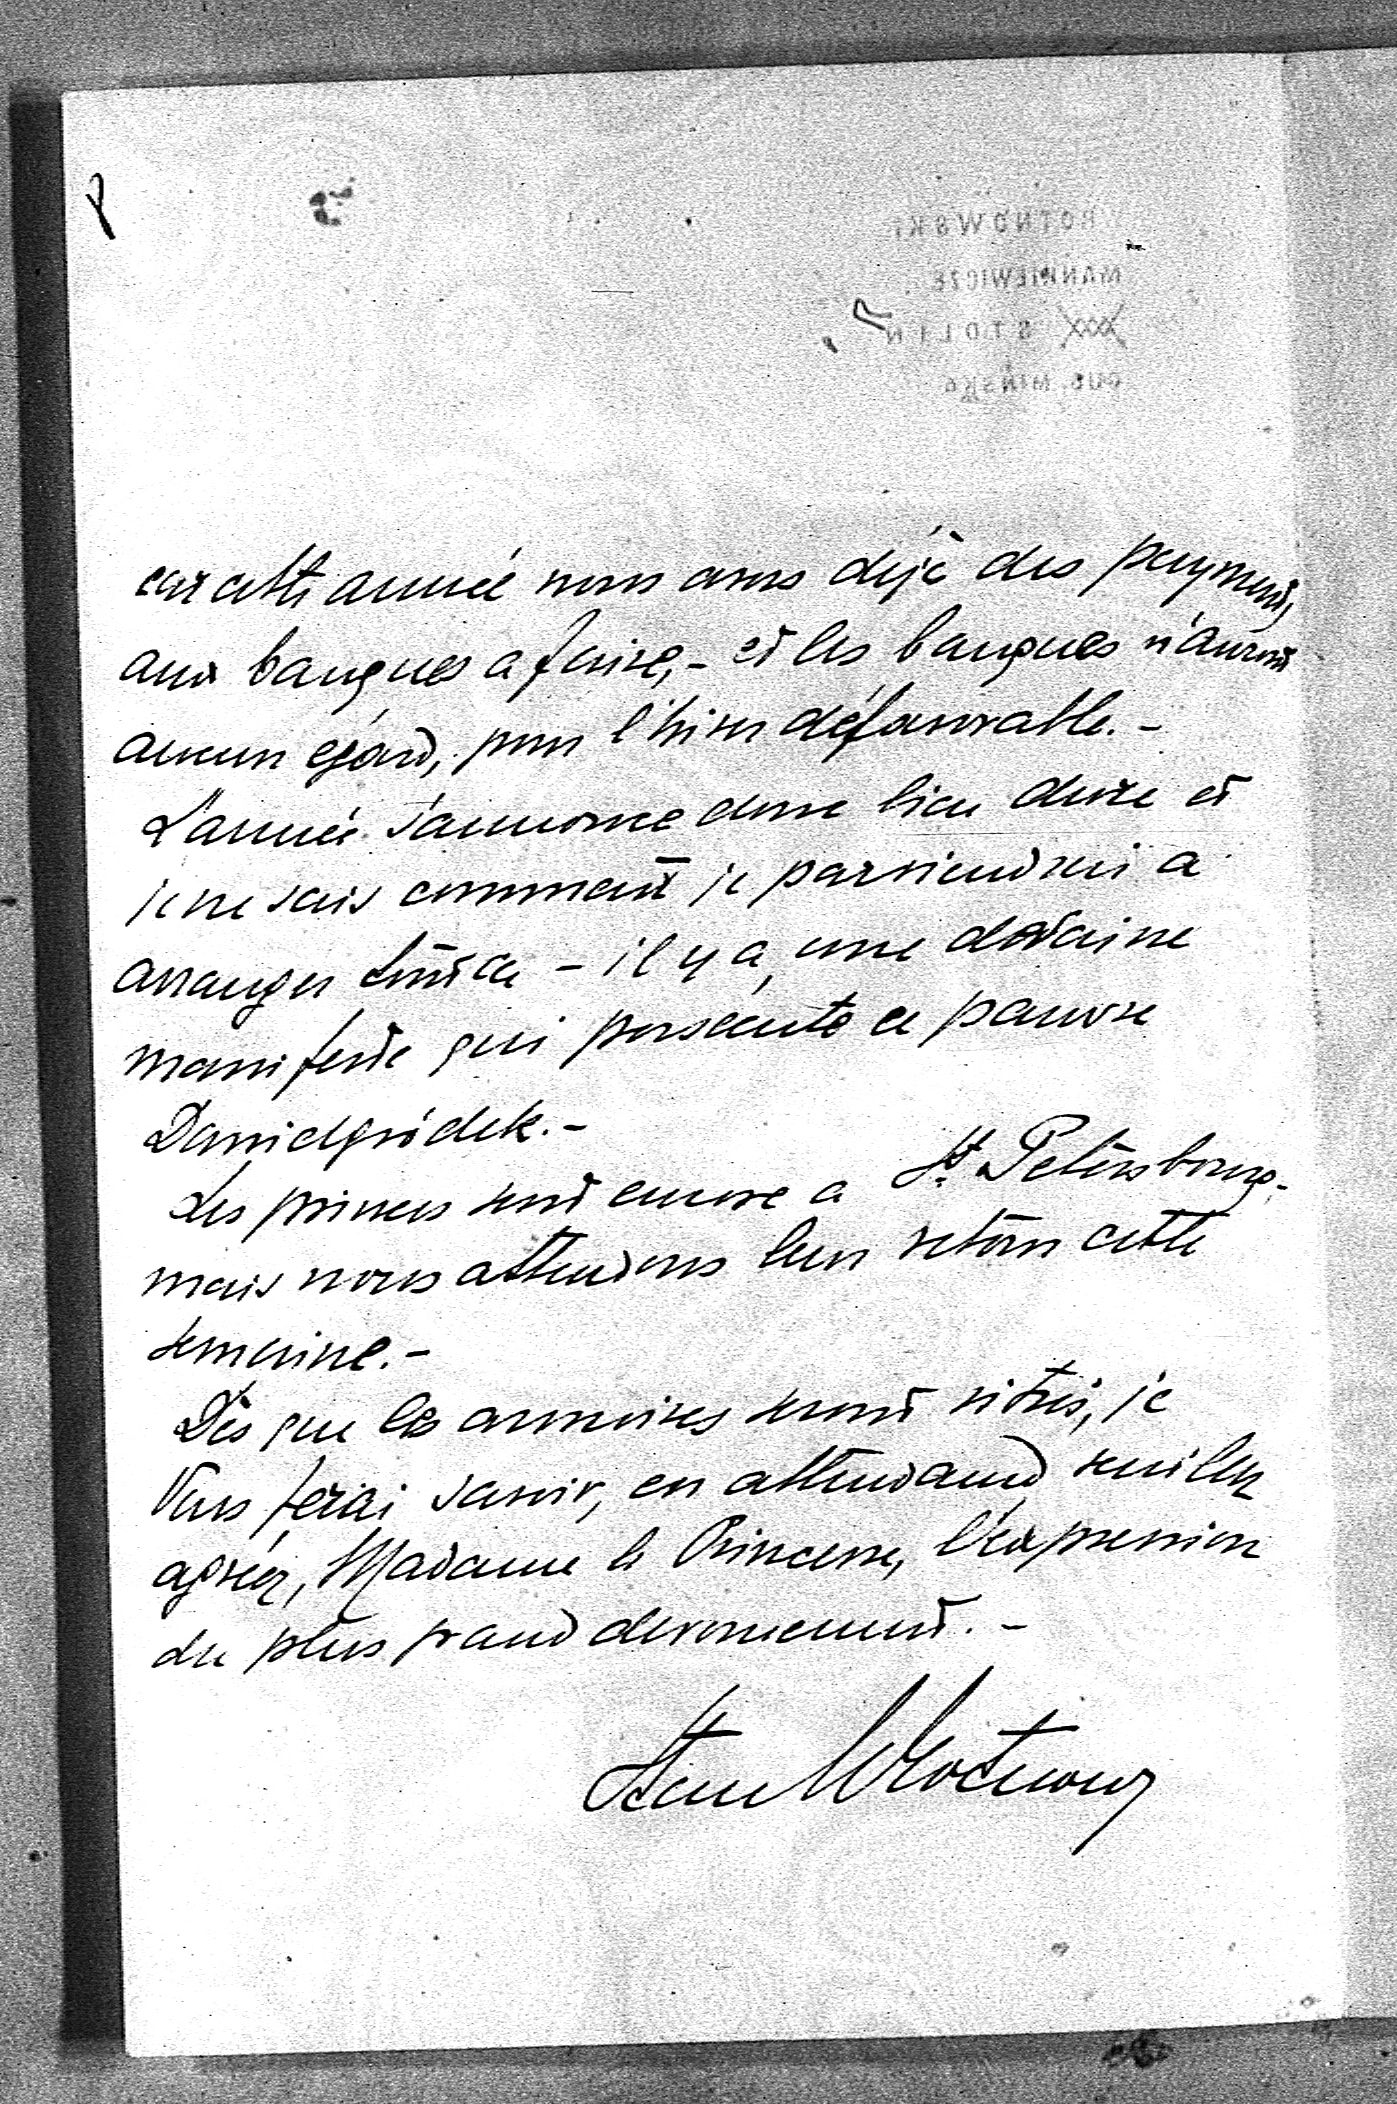 ROTNOWSKI
MANKIEWICZE
STOLIN
GUB. MIŃSKA
car cette année nous avons déjà des payments
aux banques a faire, - et les banques n'auront
aucun egard, pour l'hiver défavorable. -
L'année s'annonce donc bien dure et
je ne sais comment je parviendrai a
arranger tout ca - il y a une
manifeste qui persécute ce pauvre
Dawidgródek. -
Les princes sont encore a St. Petersbourg -
mais nous attendons leur retour cette
semaine. -
Dès que les armoires seront vitrés, je
Vous ferai savoir, en attendand veuillez
agréer, Madame la Princesse, l'expression
du plus grand devouement. -
Stan Wrotnowski